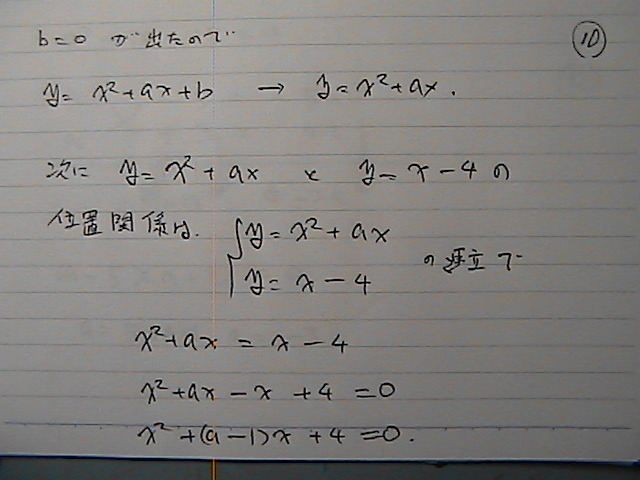 b=0 が出たので
⑩
y= x²+ax+b → y=x²+ax.
次に y=x²+ax と y=x-4の
位置関係は、
{y=x²+ax
y=x-4
の連立で
x²+ax = x-4
x²+ax-x+4=0
x²+(a-1)x+4=0.